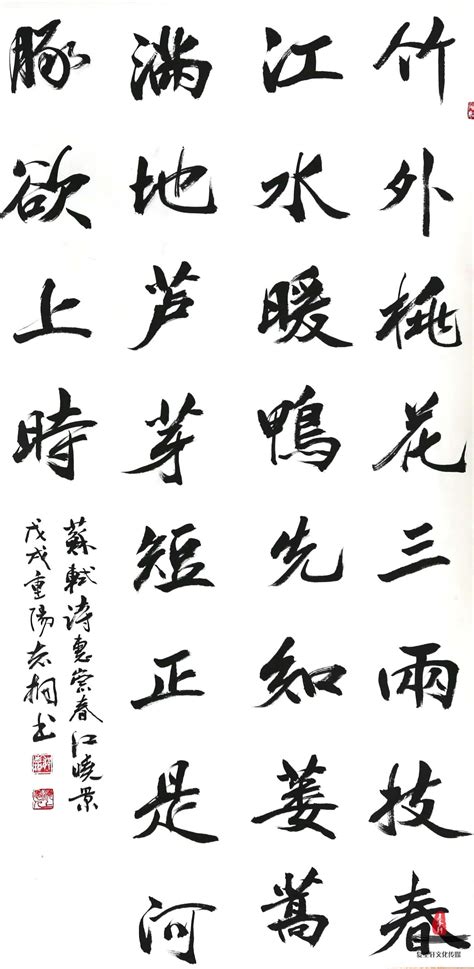 竹外桃花三兩技春
江水暖鴨先知蒌蒿
满地芦芽短正是河
豚欲上時
蘇軾诗惠崇春江曉景
戊戌重陽志桐书
轩文化传媒